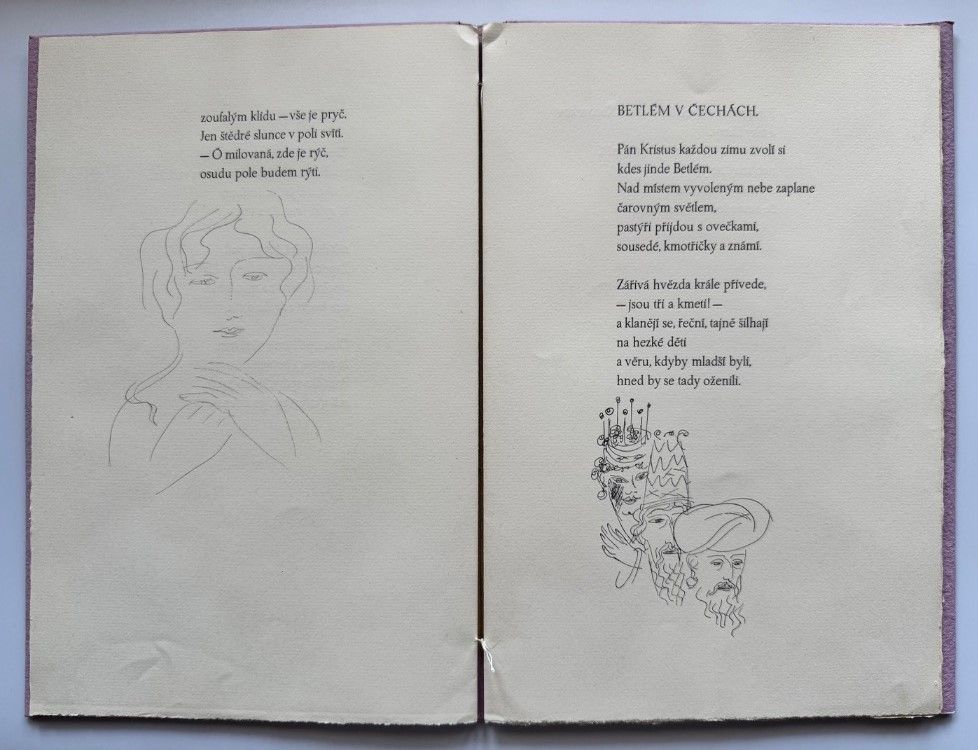 zoufalým klidu — vše je pryč.
Jen štědré slunce v polí svítí.
— Ó milovaná, zde je rýč,
osudu pole budem rýti.
BETLÉM V ČECHÁCH.
Pán Kristus každou zimu zvolí si
kdes jinde Betlém.
Nad místem vyvoleným nebe zaplane
čarovným světlem,
pastýři přijdou s ovečkami,
sousedé, kmotřičky a známí.
Zářivá hvězda krále přivede,
— jsou tři a kmeti! —
a klanějí se, řeční, tajně šilhají
na hezké děti
a věru, kdyby mladší byli,
hned by se tady oženili.